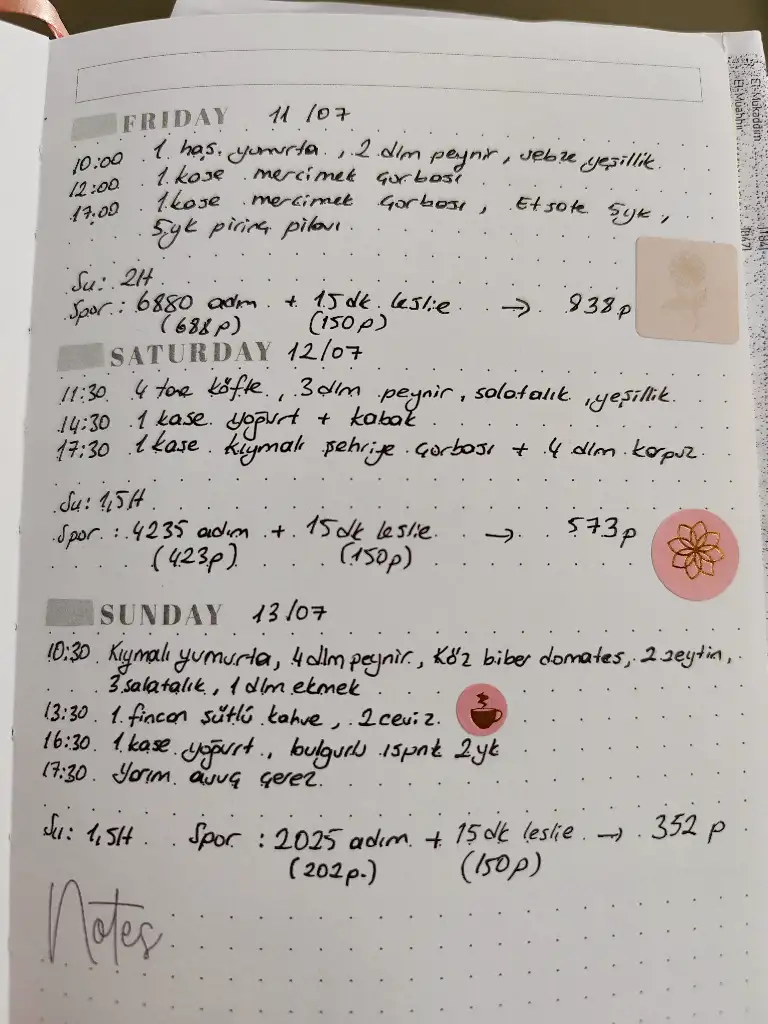 FRIDAY 11/07
10:00 1 haş. yumurta, 2 dlm peynir, sebze yeşillik.
12:00 1 kase mercimek çorbası
17.00 1 kase mercimek çorbası, Et sote 5yk,
5yk pirinç pilavı.
Su: 2lt
Spor: 6880 adım + 15 dk leslie → 838 p
(688p) (150p)
SATURDAY 12/07
11:30 4 tane köfte, 3 dlm peynir, salatalık, yeşillik.
14:30 1 kase yoğurt + kabak
17:30 1 kase kıymalı şehriye çorbası + 4 dlm karpuz.
Su: 1,5lt
Spor: 4235 adım + 15 dk leslie → 573 p
(423p) (150p)
SUNDAY 13/07
10:30 Kıymalı yumurta, 4 dlm peynir, köz biber domates, 2 zeytin,
3 salatalık, 1 dlm ekmek
13:30 1 fincan sütlü kahve, 2 ceviz.
16:30 1 kase yoğurt, bulgurlu ıspnk 2yk
17:30 Yarım avuç çerez.
Su: 1,5lt Spor: 2025 adım + 15 dk leslie → 352 p
(202p.) (150p)
Notes
El-Mukaddim
El-Muahhir